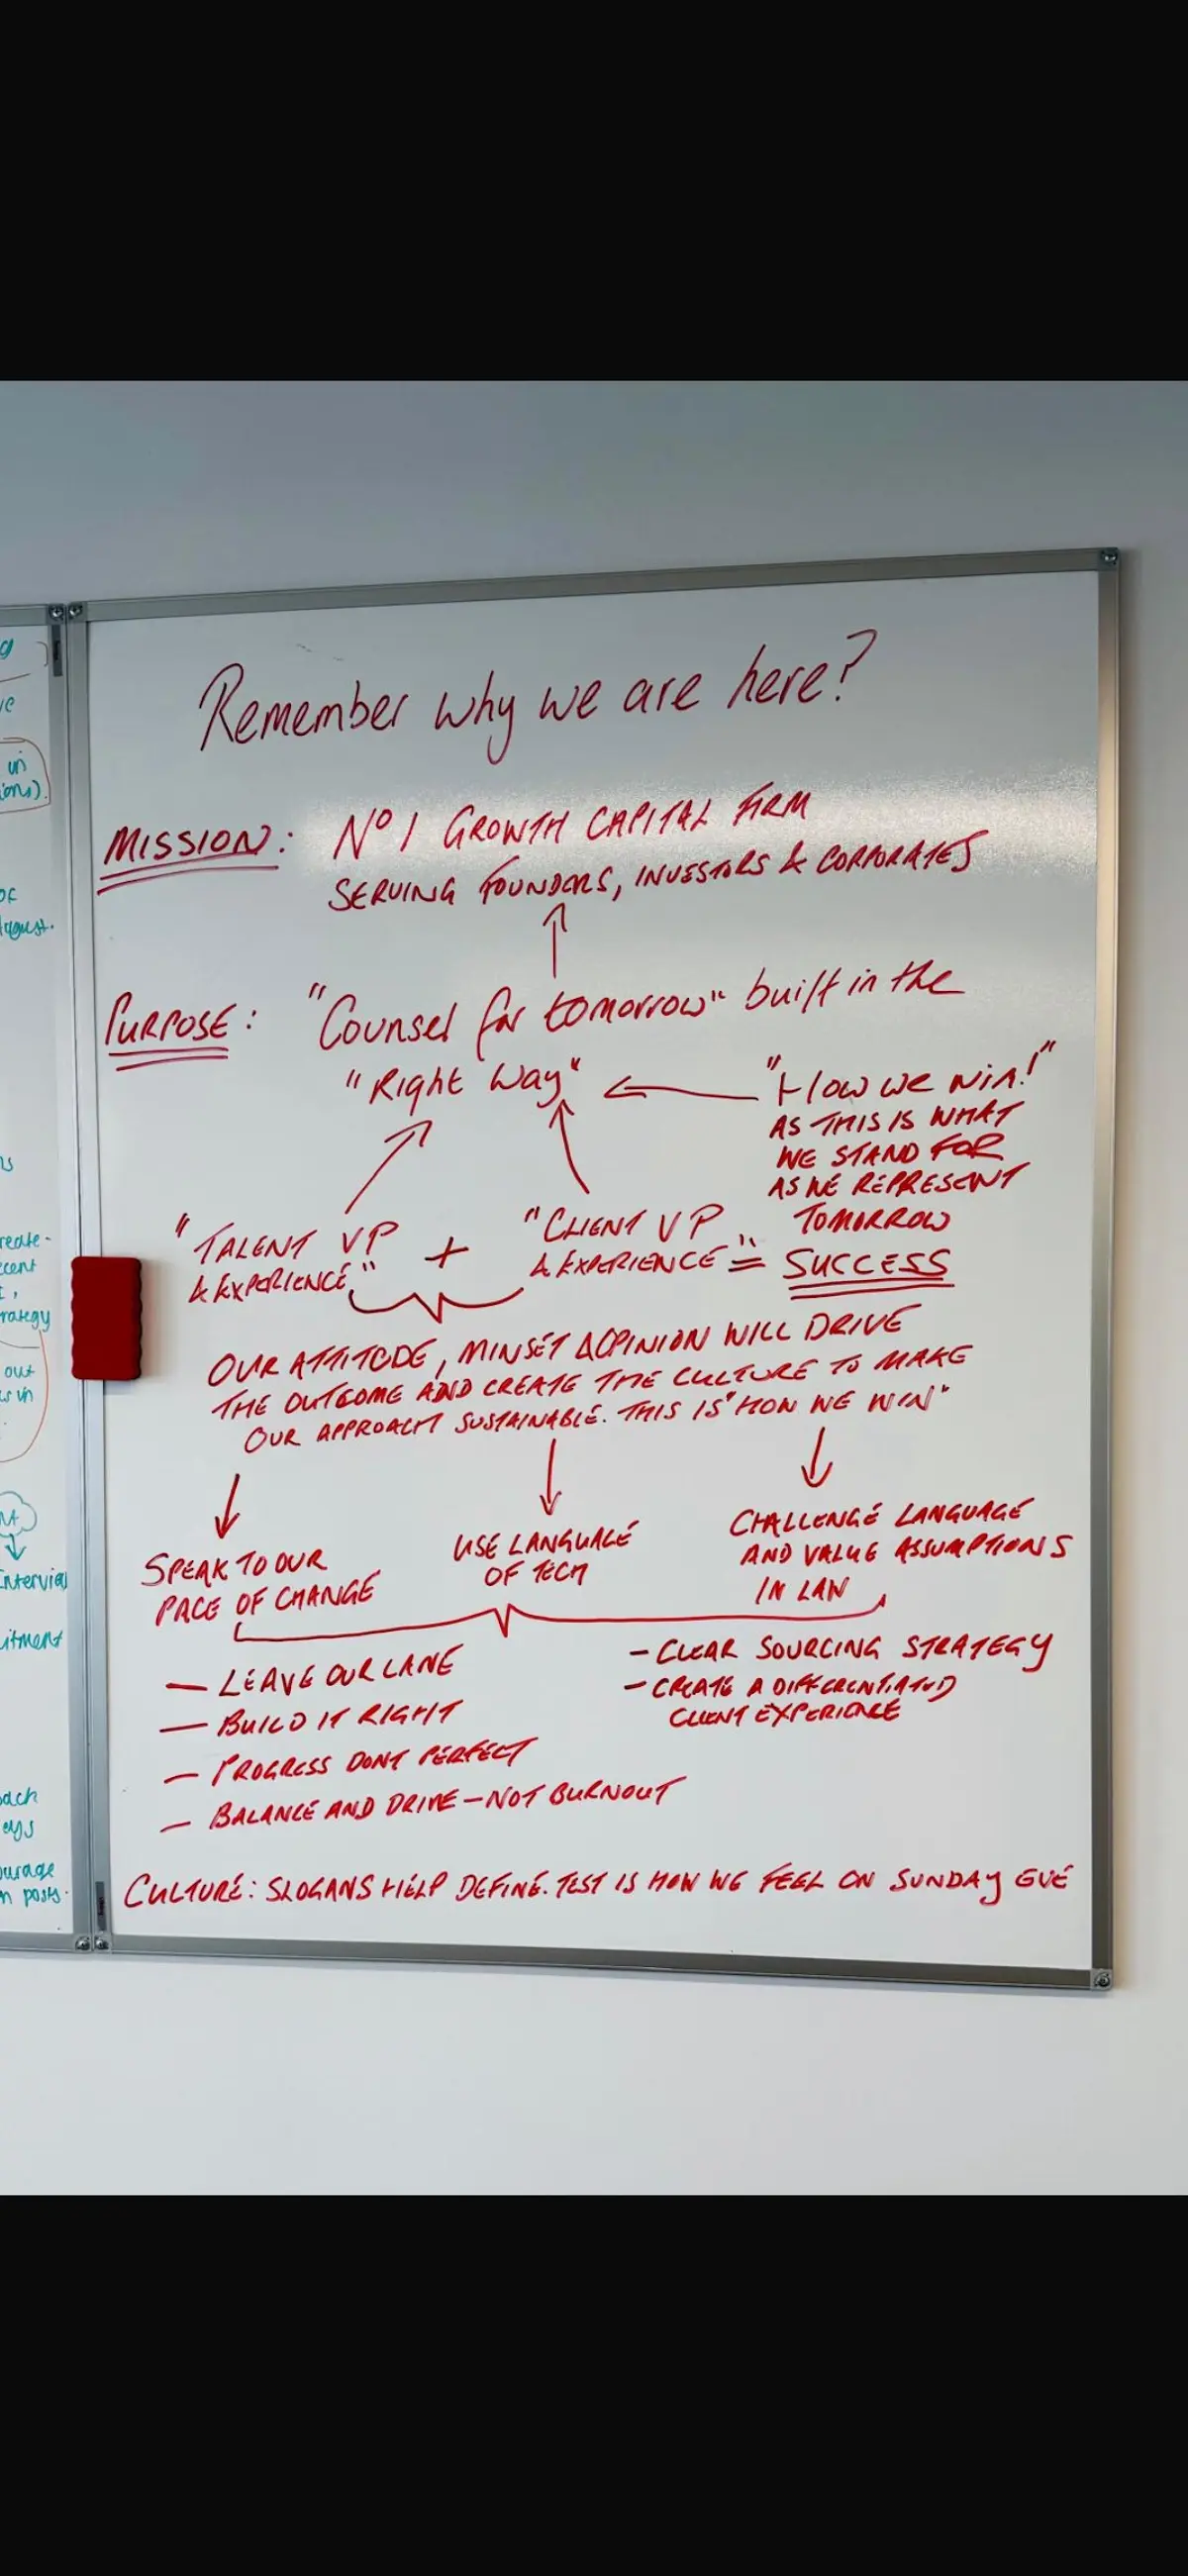 Remember why we are here?
MISSION: Nº 1 GROWTH CAPITAL FIRM
SERVING FOUNDERS, INVESTORS & CORPORATES
PURPOSE: "Counsel for tomorrow" built in the
"Right Way"
"How we win!"
AS THIS IS WHAT
WE STAND FOR
AS WE REPRESENT
TOMORROW
"TALENT VP
& EXPERIENCE"
+
"CLIENT VP
& EXPERIENCE"
= SUCCESS
OUR ATTITUDE, MINSET & OPINION WILL DRIVE
THE OUTCOME AND CREATE THE CULTURE TO MAKE
OUR APPROACH SUSTAINABLE. THIS IS "HOW WE WIN"
SPEAK TO OUR
PACE OF CHANGE
USE LANGUAGE
OF TECH
CHALLENGE LANGUAGE
AND VALUE ASSUMPTIONS
IN LAW
- LEAVE OUR LANE
- BUILD IT RIGHT
- PROGRESS DONT PERFECT
- BALANCE AND DRIVE - NOT BURNOUT
- CLEAR SOURCING STRATEGY
- CREATE A DIFFERENTIATED
CLIENT EXPERIENCE
CULTURE: SLOGANS HELP DEFINE. TEST IS HOW WE FEEL ON SUNDAY EVE